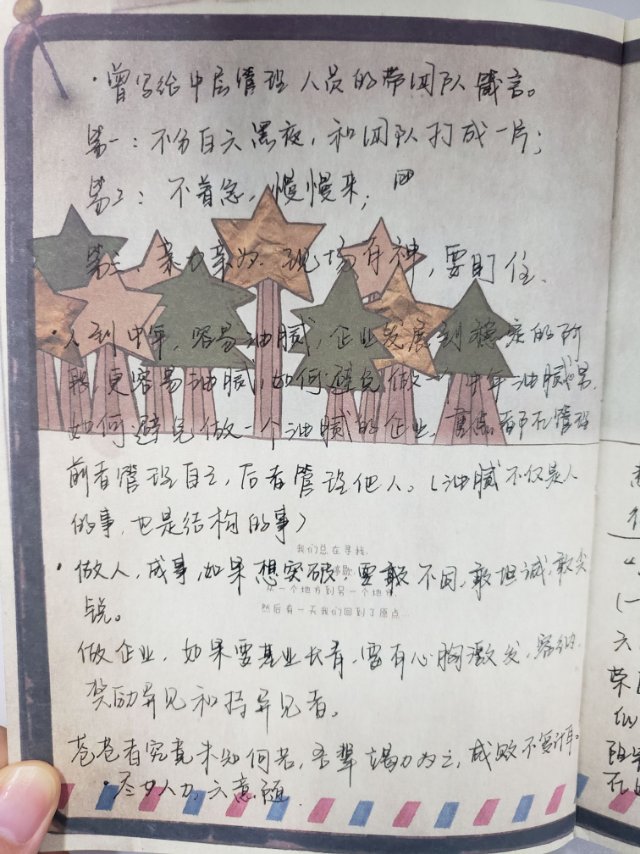 ·曾写给中层管理人员的带团队箴言。
第一：不分白天黑夜，和团队打成一片；
第2：不着急，慢慢来；
第三、亲力亲为．现场有神，要盯住．
·人到中年，容易油腻，企业发展到稳定的阶
段更容易油腻，如何避免做一个中年油腻男，
如何避免做一个油腻的企业，
都在管理
前者管理自己，后者管理他人。（油腻不仅是人
的事，也是结构的事）
我们总在寻找
·做人，成事，如果想突破，要敢不同，敢坦诚，敢尖
从一个地方到另一个地方
锐。
然后有一天我们回到了原点...
做企业，如果要基业长青，要有心胸激发，容纳，
奖励异见和持异见者。
苍苍者究竟未知何若，吾辈竭力为之，成败不复计耳。
·尽力人力，天意随